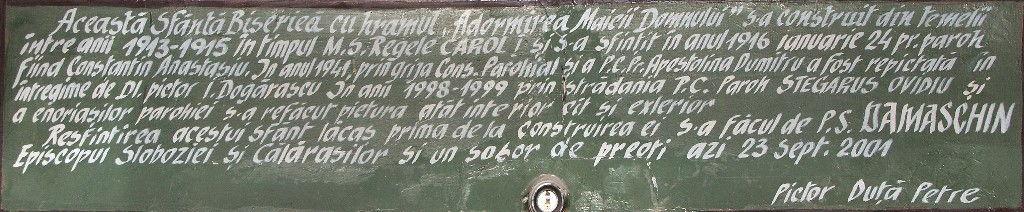 Această Sfântă Biserica cu hramul „Adormirea Maicii Domnului" s-a construit din temelii
între anii 1913-1915 în timpul M.S. Regele CAROL I și s-a sfințit în anul 1916 ianuarie 24 pr. paroh
fiind Constantin Anastasiu. În anul 1941, prin grija Cons. Parohial și a P.C.P. Apostolina Dumitru a fost repictată în
întregime de Dl. pictor I. Dogărascu În anii 1998-1999 prin strădania P.C. Paroh STEGARUS OVIDIU și
a enoriașilor parohiei s-a refăcut pictura atât interior cât și exterior
Resfintirea acestui sfant lacas prima de la construirea ei s-a făcut de P.S. DAMASCHIN
Episcopul Sloboziei și Călărașilor și un sobor de preoți azi 23 Sept. 2001
Pictor Duță Petre